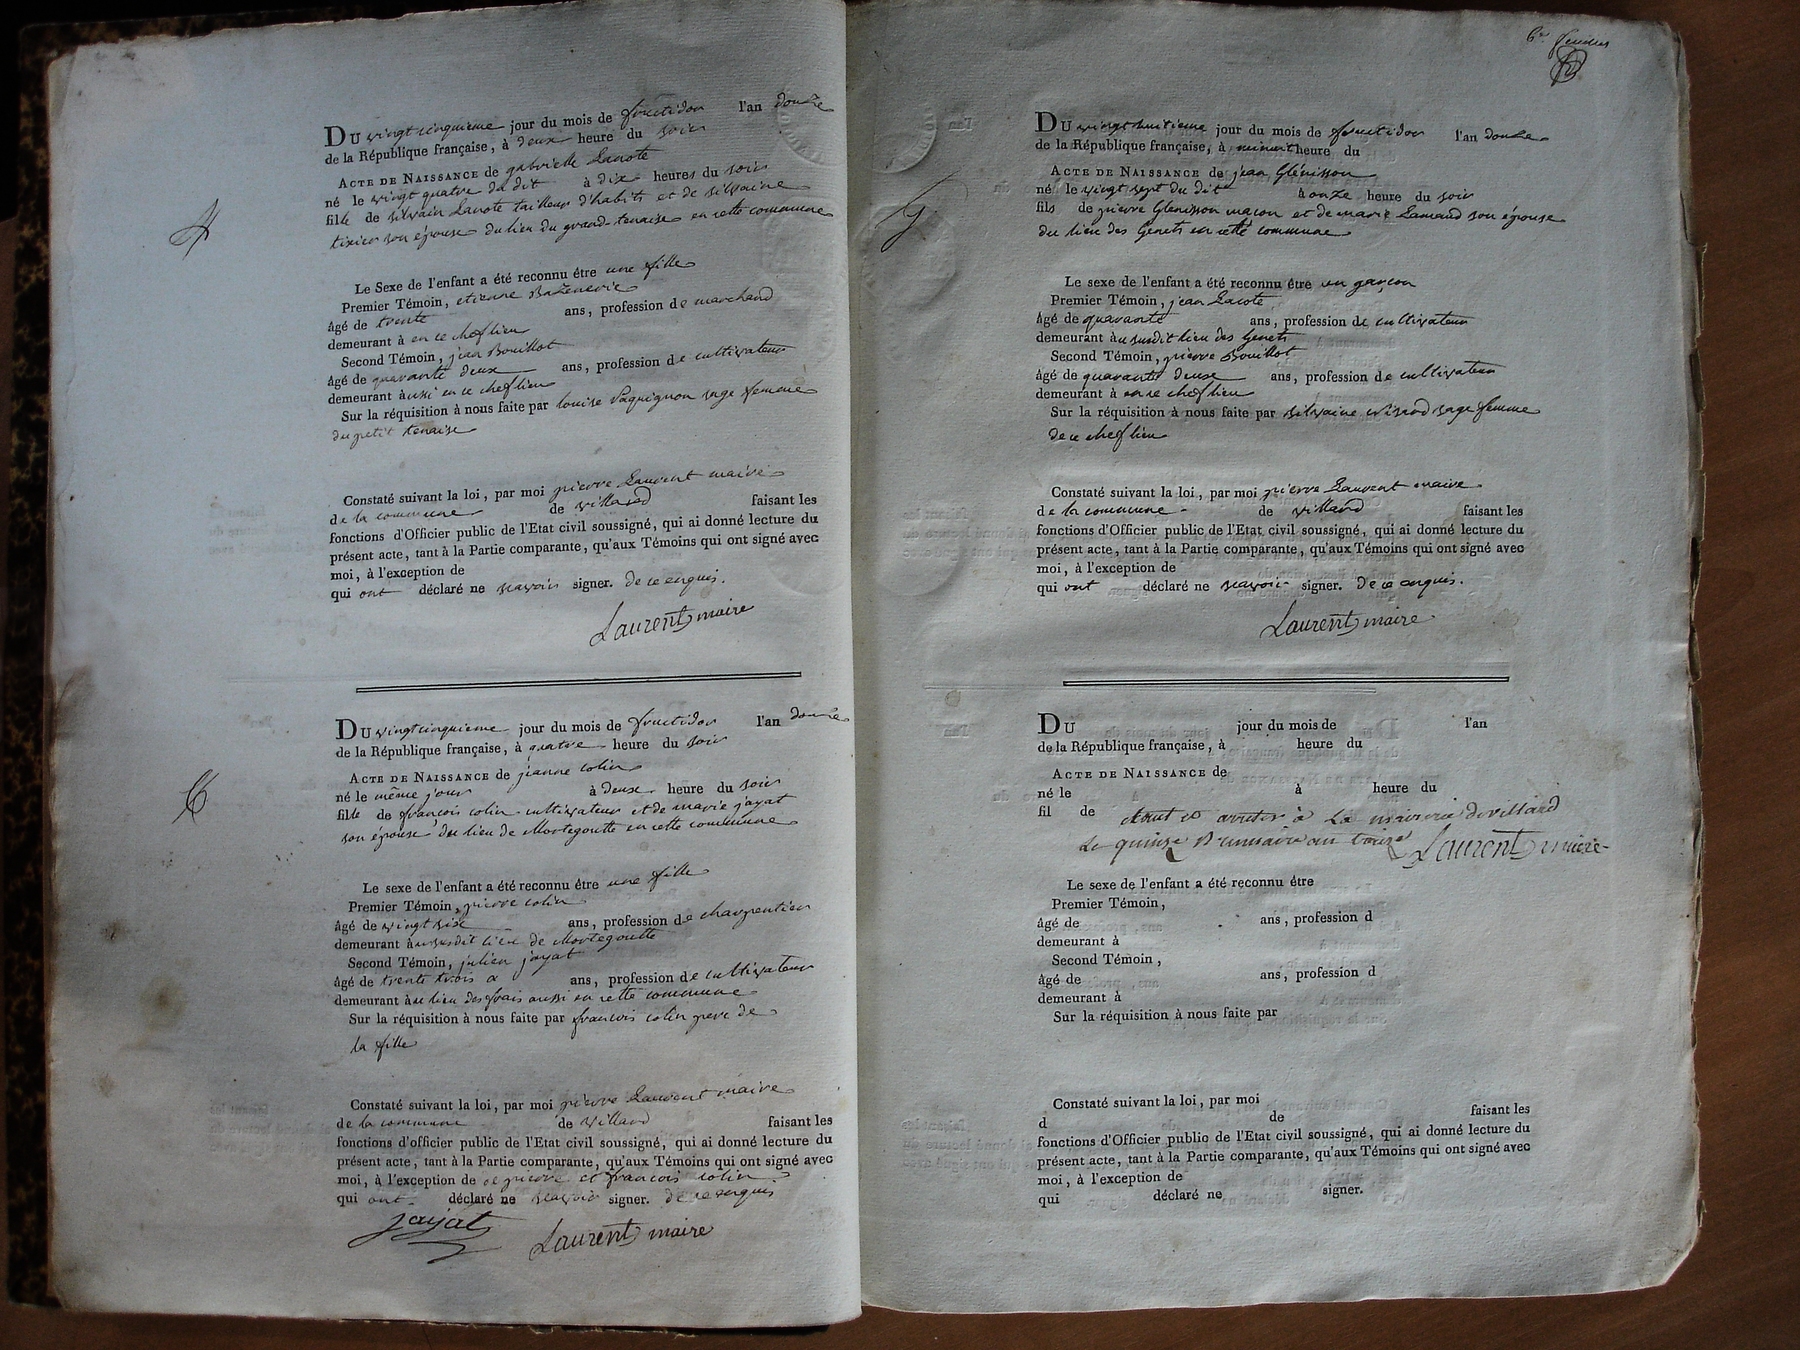 DU vingt cinquieme jour du mois de fructidor l'an douze
de la République française, à deux heure du soir
ACTE DE NAISSANCE de gabrielle Lanote
né le vingt quatre du dit à dix heures du soir
fille de silvain Lanote tailleur d'habits et de silvaine
tixier son épouse du lieu du grand-tenaise en cette commune
Le Sexe de l'enfant a été reconnu être une fille
Premier Témoin, etienne Bazenerie
âgé de trente ans, profession de marchand
demeurant à en ce cheflieu
Second Témoin, jean Bouillot
âgé de quarante deux ans, profession de cultivateur
demeurant àussi en ce cheflieu
Sur la réquisition à nous faite par louise Paquignon sage femme
du petit tenaise
Constaté suivant la loi, par moi pierre Laurent maire
de la commune de villard faisant les
fonctions d'Officier public de l'Etat civil soussigné, qui ai donné lecture du
présent acte, tant à la Partie comparante, qu'aux Témoins qui ont signé avec
moi, à l'exception de
qui ont déclaré ne scavoir signer. de ce enquis.
Laurent maire
DU vingt cinquieme jour du mois de fructidor l'an douze
de la République française, à quatre heure du soir
ACTE DE NAISSANCE de jeanne colin
né le même jour à deux heure du soir
fille de françois colin cultivateur et de marie jayat
son épouse du lieu de Mortegoutte en cette commune
Le sexe de l'enfant a été reconnu être une fille
Premier Témoin, pierre colin
âgé de vingt six ans, profession de charpentier
demeurant àu susdit lieu de Mortegoutte
Second Témoin, julien jayat
âgé de trente trois a ans, profession de cultivateur
demeurant àu lieu des frais aussi en cette commune
Sur la réquisition à nous faite par francois colin pere de
la fille
Constaté suivant la loi, par moi pierre Laurent maire
de la commune de villard faisant les
fonctions d'officier public de l'Etat civil soussigné, qui ai donné lecture du
présent acte, tant à la Partie comparante, qu'aux Témoins qui ont signé avec
moi, à l'exception de pierre et françois colin
qui ont déclaré ne scavoir signer. de ce enquis
jayat Laurent maire
6e
DU vingt huitieme jour du mois de fructidor l'an douze
de la République française, à minuit heure du
ACTE DE NAISSANCE de jean Glénisson
né le vingt sept du dit à onze heure du soir
fils de pierre Glenisson maçon et de marie Lamaud son épouse
du lieu des Genets en cette commune
Le sexe de l'enfant a été reconnu être un garçon
Premier Témoin, jean Lacote
âgé de quarante ans, profession de cultivateur
demeurant àu susdit lieu des Genets
Second Témoin, pierre Bouillot
âgé de quarante deux ans, profession de cultivateur
demeurant à en ce cheflieu
Sur la réquisition à nous faite par silvaine sage femme
de ce cheflieu
Constaté suivant la loi, par moi pierre Laurent maire
de la commune de villard faisant les
fonctions d'Officier public de l'Etat civil soussigné, qui ai donné lecture du
présent acte, tant à la Partie comparante, qu'aux Témoins qui ont signé avec
moi, à l'exception de
qui ont déclaré ne scavoir signer. de ce enquis.
Laurent maire
DU jour du mois de l'an
de la République française, à heure du
ACTE DE NAISSANCE de
né le à heure du
fil de
arreter à La mairie de villard
Le quinze Brumaire an treize Laurent maire
Le sexe de l'enfant a été reconnu être
Premier Témoin,
âgé de ans, profession d
demeurant à
Second Témoin,
âgé de ans, profession d
demeurant à
Sur la réquisition à nous faite par
Constaté suivant la loi, par moi
d de faisant les
fonctions d'Officier public de l'Etat civil soussigné, qui ai donné lecture du
présent acte, tant à la Partie comparante, qu'aux Témoins qui ont signé avec
moi, à l'exception de
qui déclaré ne signer.